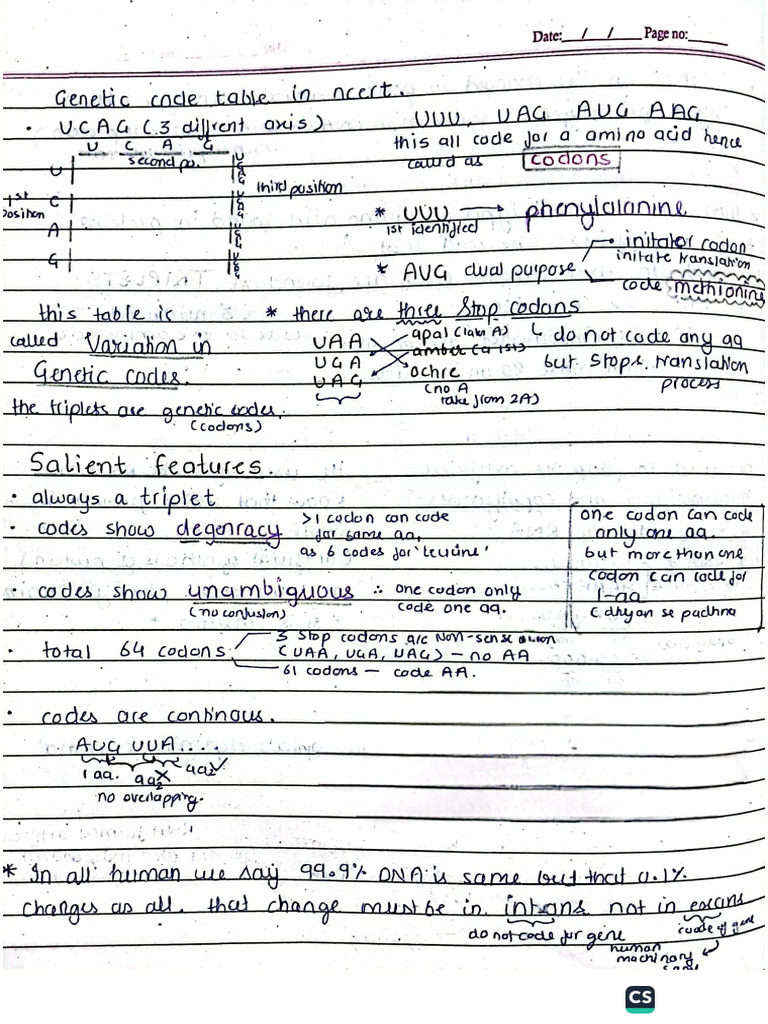 Date: / / Page no:
Genetic code table in ncert.
• UCAG (3 diffrent axis)
U C A G
second po.
U
C
A
G
1st position
third position
U C A G
U C A G
U C A G
U C A G
UUU, UAG AUG AAG
this all code for a amino acid hence
called as codons
* UUU → phenylalanine
1st identified
* AUG dual purpose
initator codon
initate translation
code methionine
this table is
called Variation in
Genetic codes.
the triplets are genetic codes.
(codons)
* there are three stop codons
UAA
UGA
UAG
opal
amber
ochre
(no A
take from 2A)
↳ do not code any aa
but stops translation
process
Salient features.
• always a triplet
• codes show degenracy
>1 codon can code
for same aa,
as 6 codes for 'leucine'
• codes show unambiguous ∴ one codon only
(no confusion) code one aa.
one codon can code
only one aa.
but more than one
codon can code for
1-aa
(dhyan se padhna
• total 64 codons
3 stop codons are Non-sense
(UAA, UGA, UAG) – no AA
61 codons – code AA.
• codes are continous.
AUG UUA....
1 aa. aa2 X aa2 ✓
no overlapping.
* In all human we say 99.9% DNA is same but that 0.1%
changes as all. that change must be in introns not in exons
do not code for gene
code of gene
human
machinary
same
CS